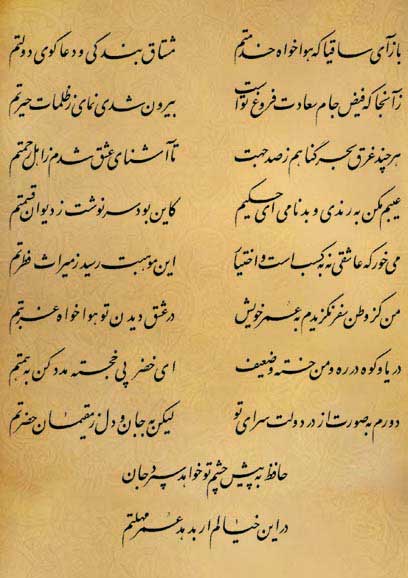 بازآی ساقیا که هواخواه خدمتم مشتاق بندگی و دعاگوی دولتم
زآنجا که فیض جام سعادت فروغ توست بیرون شدی نمای ز ظلمات حیرتم
هر چند غرق بحر گناهم ز صد جهت تا آشنای عشق شدم ز اهل رحمتم
عیبم مکن به رندی و بدنامی ای حکیم کاین بود سرنوشت ز دیوان قسمتم
می خور که عاشقی نه به کسب است و اختیار این موهبت رسید ز میراث فطرتم
من کز وطن سفر نگزیدم به عمر خویش در عشق دیدن تو هواخواه غربتم
دریا و کوه در ره و من خسته و ضعیف ای خضر پی خجسته مدد کن به همتم
دورم به صورت از در دولت سرای تو لیکن به جان و دل ز مقیمان حضرتم
حافظ به پیش چشم تو خواهد سپرد جان
در این خیالم ار بدهد عمر مهلتم